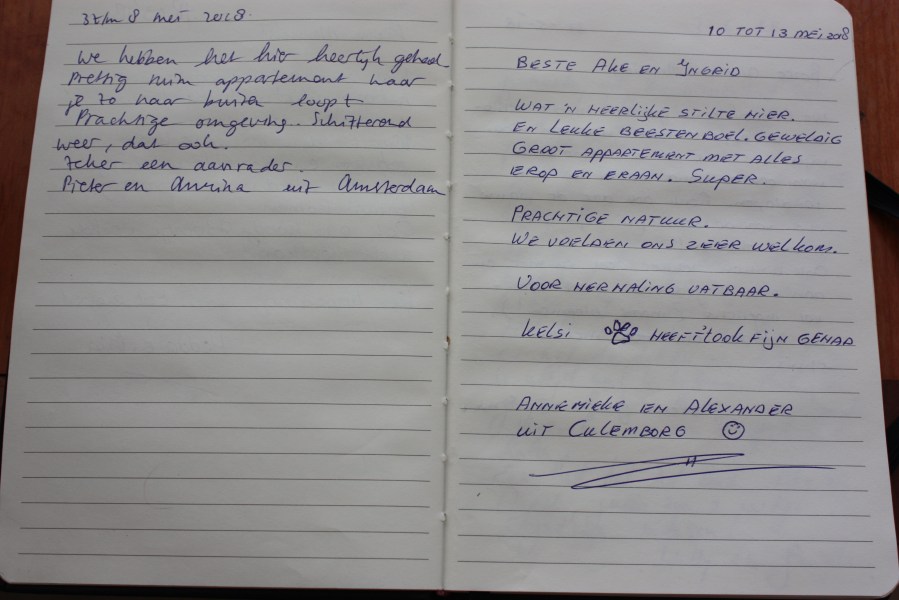 3 t/m 8 mei 2018.
We hebben het hier heerlijk gehad
Prettig ruim appartement waar
je zo naar buiten loopt
Prachtige omgeving. Schitterend
weer, dat ook.
Zeker een aanrader.
Pieter en Annina uit Amsterdam
10 TOT 13 MEI 2018
BESTE AKE EN INGRID
WAT 'N HEERLIJKE STILTE HIER.
EN LEUKE BEESTENBOEL. GEWELDIG
GROOT APPARTEMENT MET ALLES
EROP EN ERAAN. SUPER.
PRACHTIGE NATUUR.
WE VOELDEN ONS ZEER WELKOM.
VOOR HERHALING VATBAAR.
KELSI HEEFT 'T OOK FIJN GEHAD
ANNEMIEKE EN ALEXANDER
UIT CULEMBORG